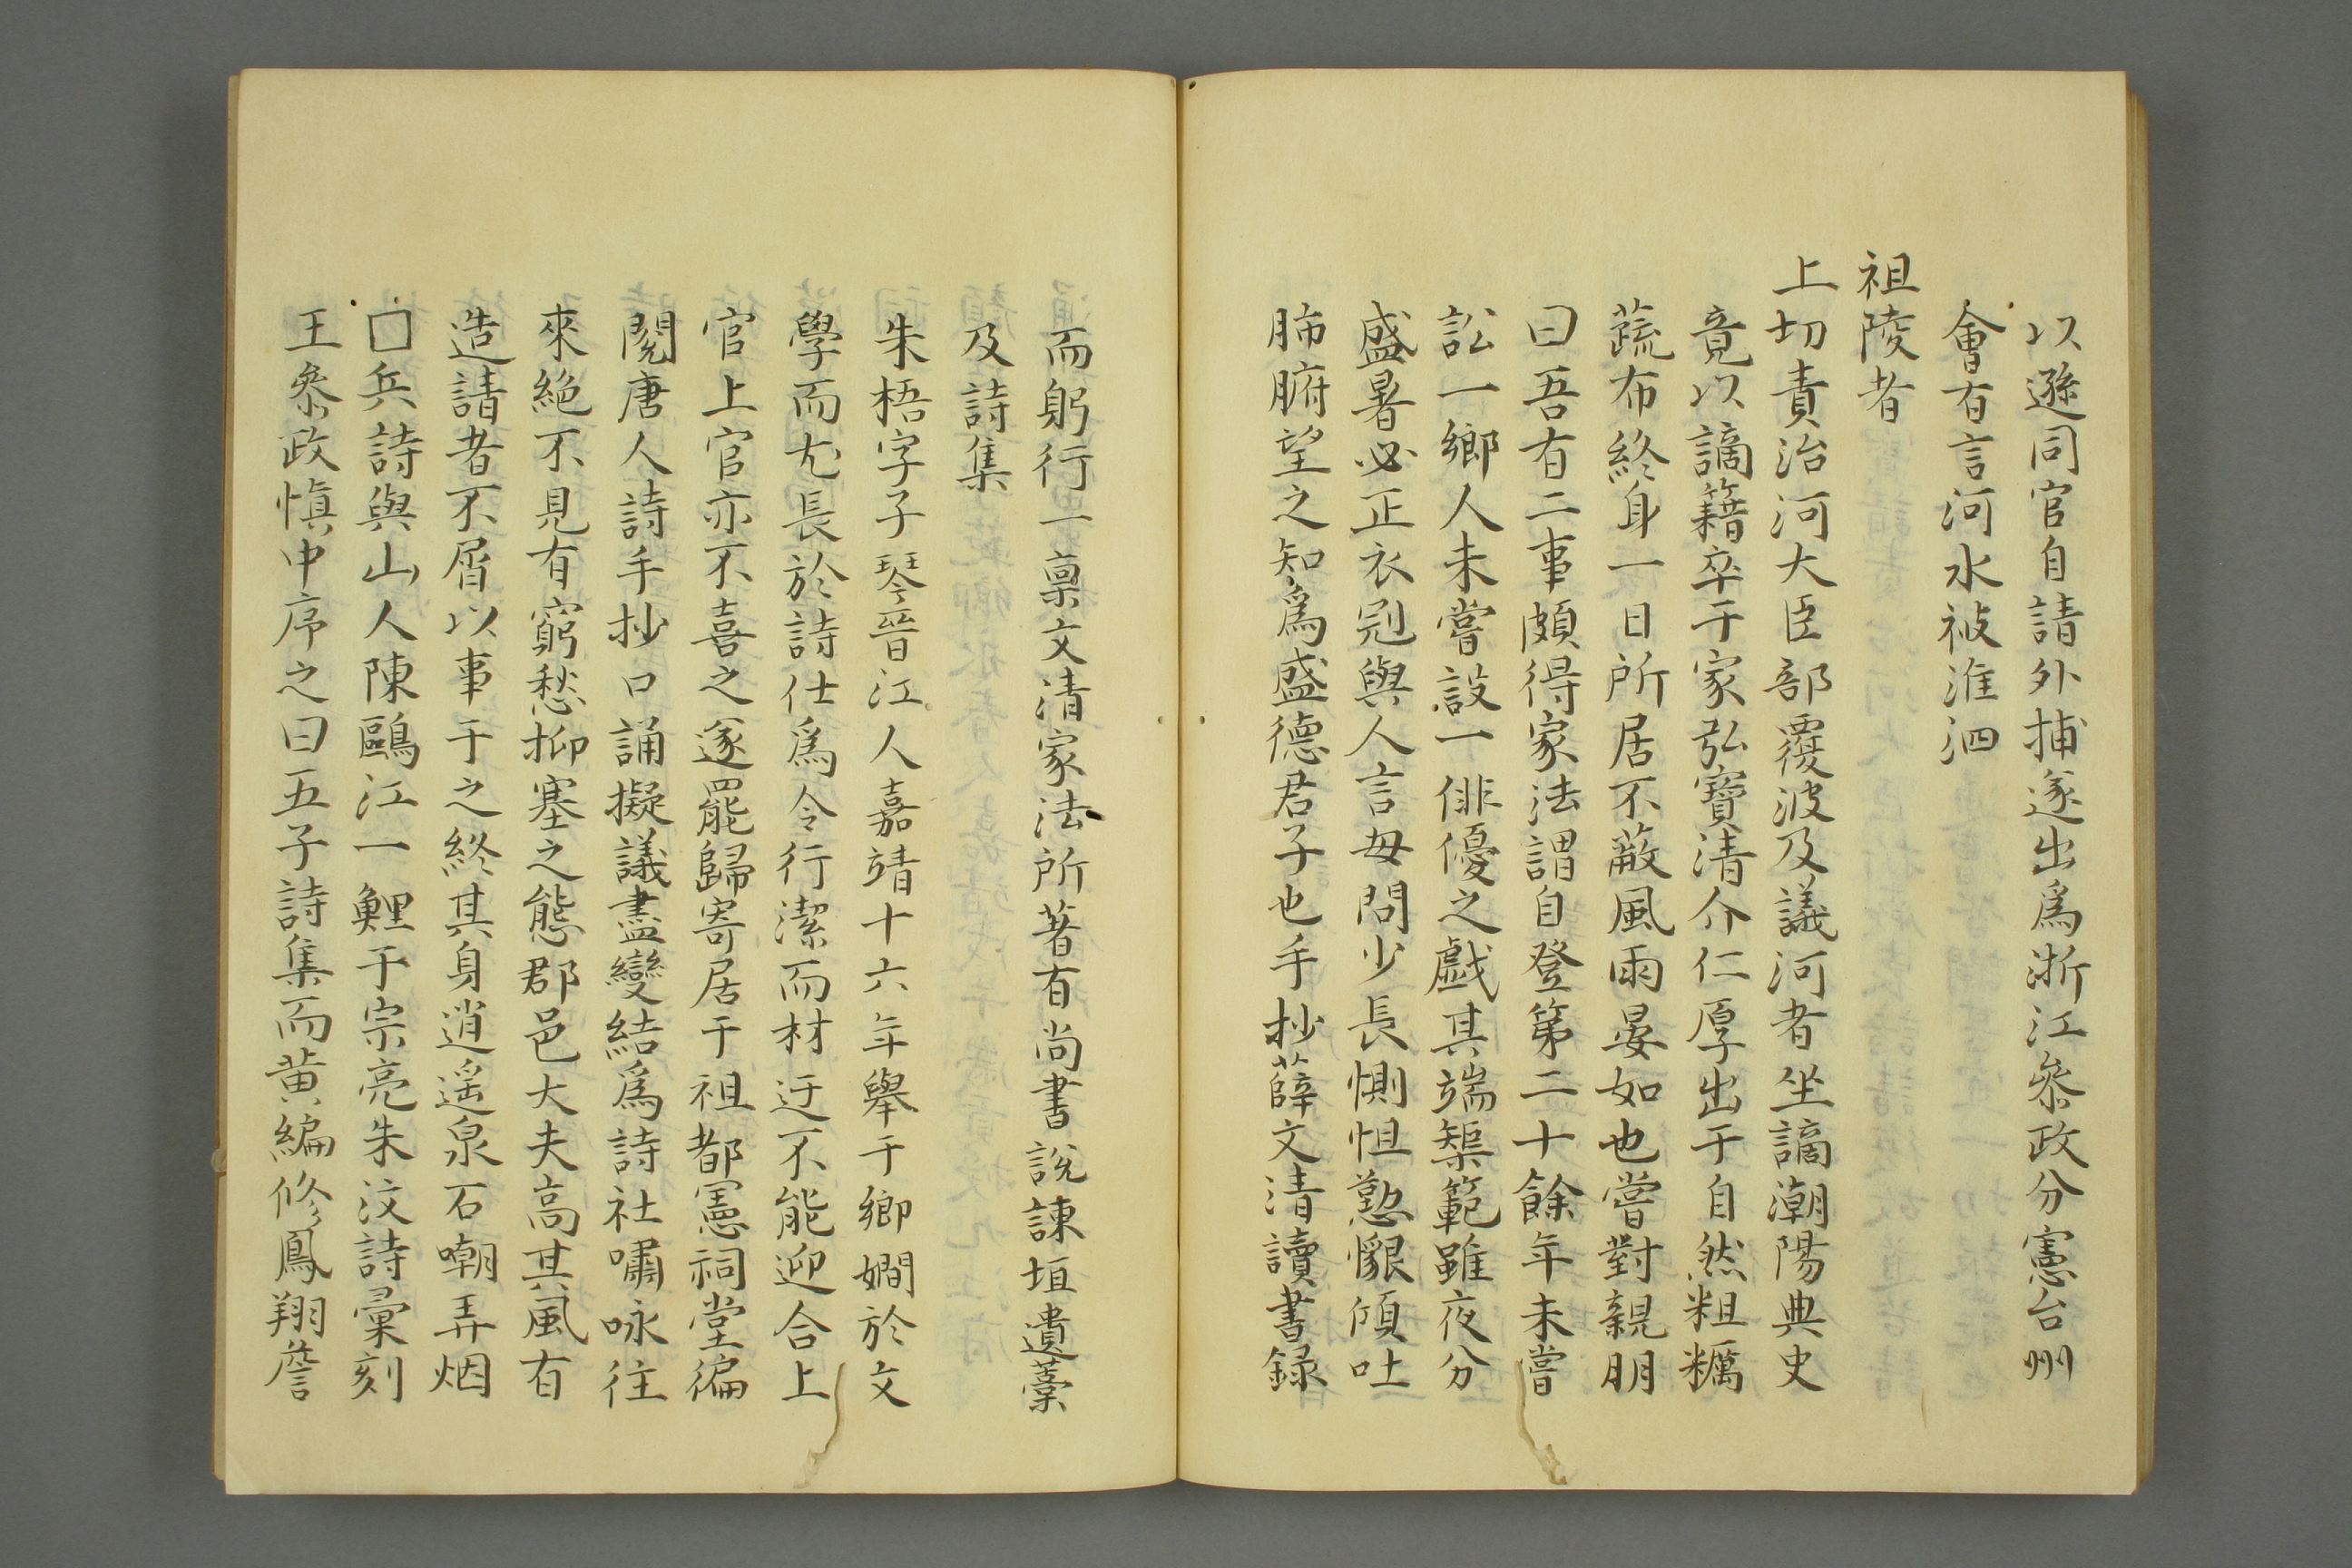 以遜同官自請外捕遂出爲浙江叅政分憲台州
會有言河水被淮泗
祖陵者
上切責治河大臣部覆波及議河者坐謫潮陽典史
竟以謫籍卒于家弘寶清介仁厚出于自然粗糲
蔬布終身一日所居不蔽風雨晏如也嘗對親朋
曰吾有二事頗得家法謂自登第二十餘年未嘗
訟一鄉人未嘗設一俳優之戲其端榘範雖夜分
盛暑必正衣冠與人言毋問少長惻怛懃懇傾吐
肺腑望之知爲盛德君子也手抄薛文清讀書録
而躬行一禀文清家法所著有尚書說諫垣遺藁
及詩集
朱梧字子琴晉江人嘉靖十六年舉于鄉嫺於文
學而尤長於詩仕爲令行潔而材迂不能迎合上
官上官亦不喜之遂罷歸寄居于祖都憲祠堂徧
閱唐人詩手抄口誦擬議盡變結爲詩社嘯咏往
來絕不見有窮愁抑塞之態郡邑大夫高其風有
造請者不屑以事干之終其身逍遥泉石嘲弄烟
□兵詩與山人陳鷗江一鯉于宗亮朱汶詩彚刻
王叅政慎中序之曰五子詩集而黄編修鳳翔詹